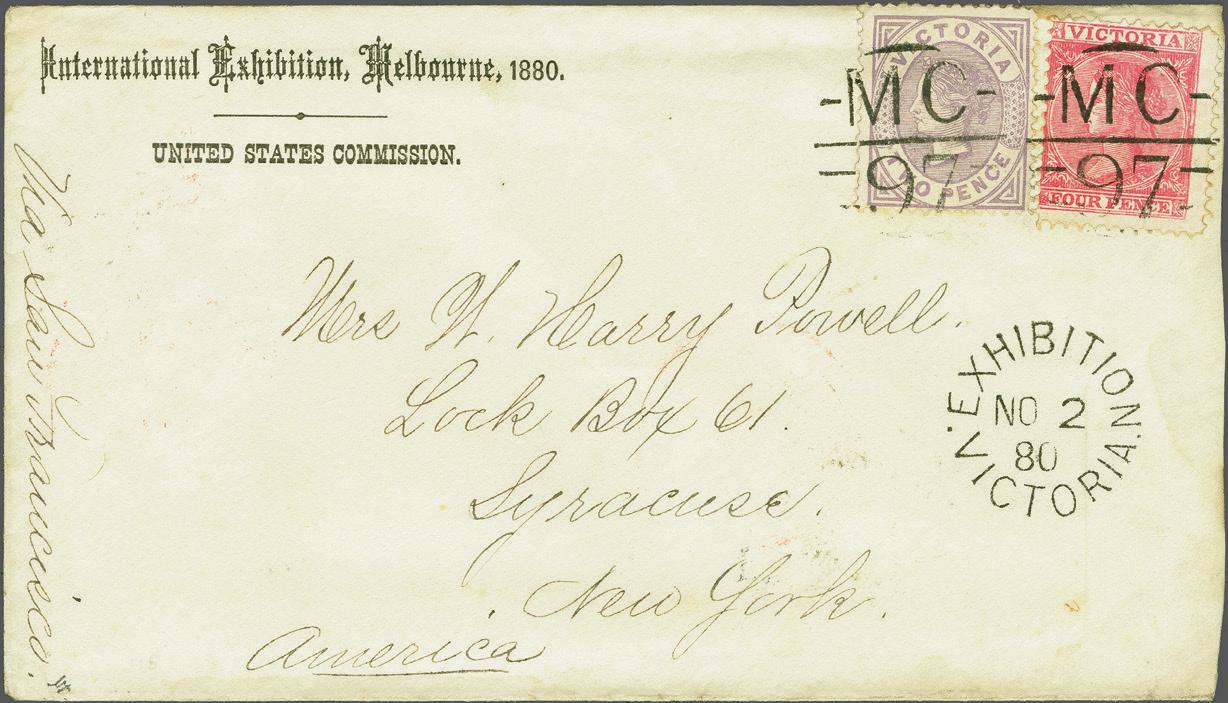 International Exhibition, Melbourne, 1880.
UNITED STATES COMMISSION.
VICTORIA
TWO PENCE
VICTORIA
FOUR PENCE
MC
97
MC
97
Via San Francisco.
Mrs W. Harry Powell.
Lock Box 61.
Syracuse.
New York.
America
EXHIBITION
NO 2
80
VICTORIA